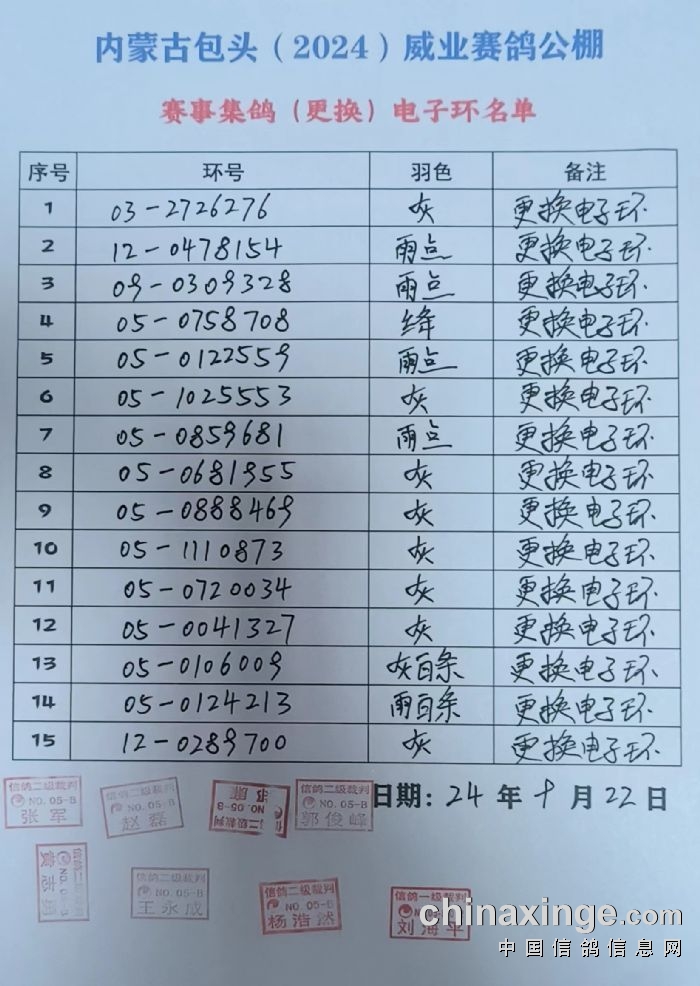 内蒙古包头（2024）威业赛鸽公棚
赛事集鸽（更换）电子环名单
序号 环号 羽色 备注
1 03-2726276 灰 更换电子环
2 12-0478154 雨点 更换电子环
3 09-0309328 雨点 更换电子环
4 05-0758708 绛 更换电子环
5 05-0122559 雨点 更换电子环
6 05-1025553 灰 更换电子环
7 05-0859681 雨点 更换电子环
8 05-0681955 灰 更换电子环
9 05-0888469 灰 更换电子环
10 05-1110873 灰 更换电子环
11 05-0720034 灰 更换电子环
12 05-0041327 灰 更换电子环
13 05-0106009 灰白条 更换电子环
14 05-0124213 雨白条 更换电子环
15 12-0289700 灰 更换电子环
日期：24年9月22日
信鸽二级裁判
NO.05-B
张军
信鸽二级裁判
NO.05-B
赵磊
信鸽二级裁判
NO.05-B
信鸽二级裁判
NO.05-B
郭俊峰
信鸽二级裁判
信鸽二级裁判
NO.05-B
王永成
信鸽二级裁判
NO.05-B
杨浩然
信鸽一级裁判
刘海平
chinaxinge.com
中国信鸽信息网